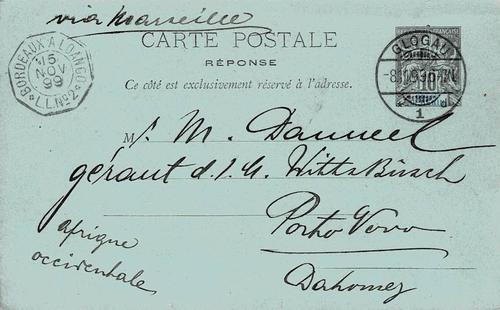 via Marseille
CARTE POSTALE
RÉPONSE
Ce côté est exclusivement réservé à l'adresse.
BORDEAUX A LOANGO
15
NOV
99
L.L.No2
GLOGAU
1
10
M. M. Danneel
gérant d. l. M Witt & Büsch
Porto Novo
Dahomey
afrique
occidentale